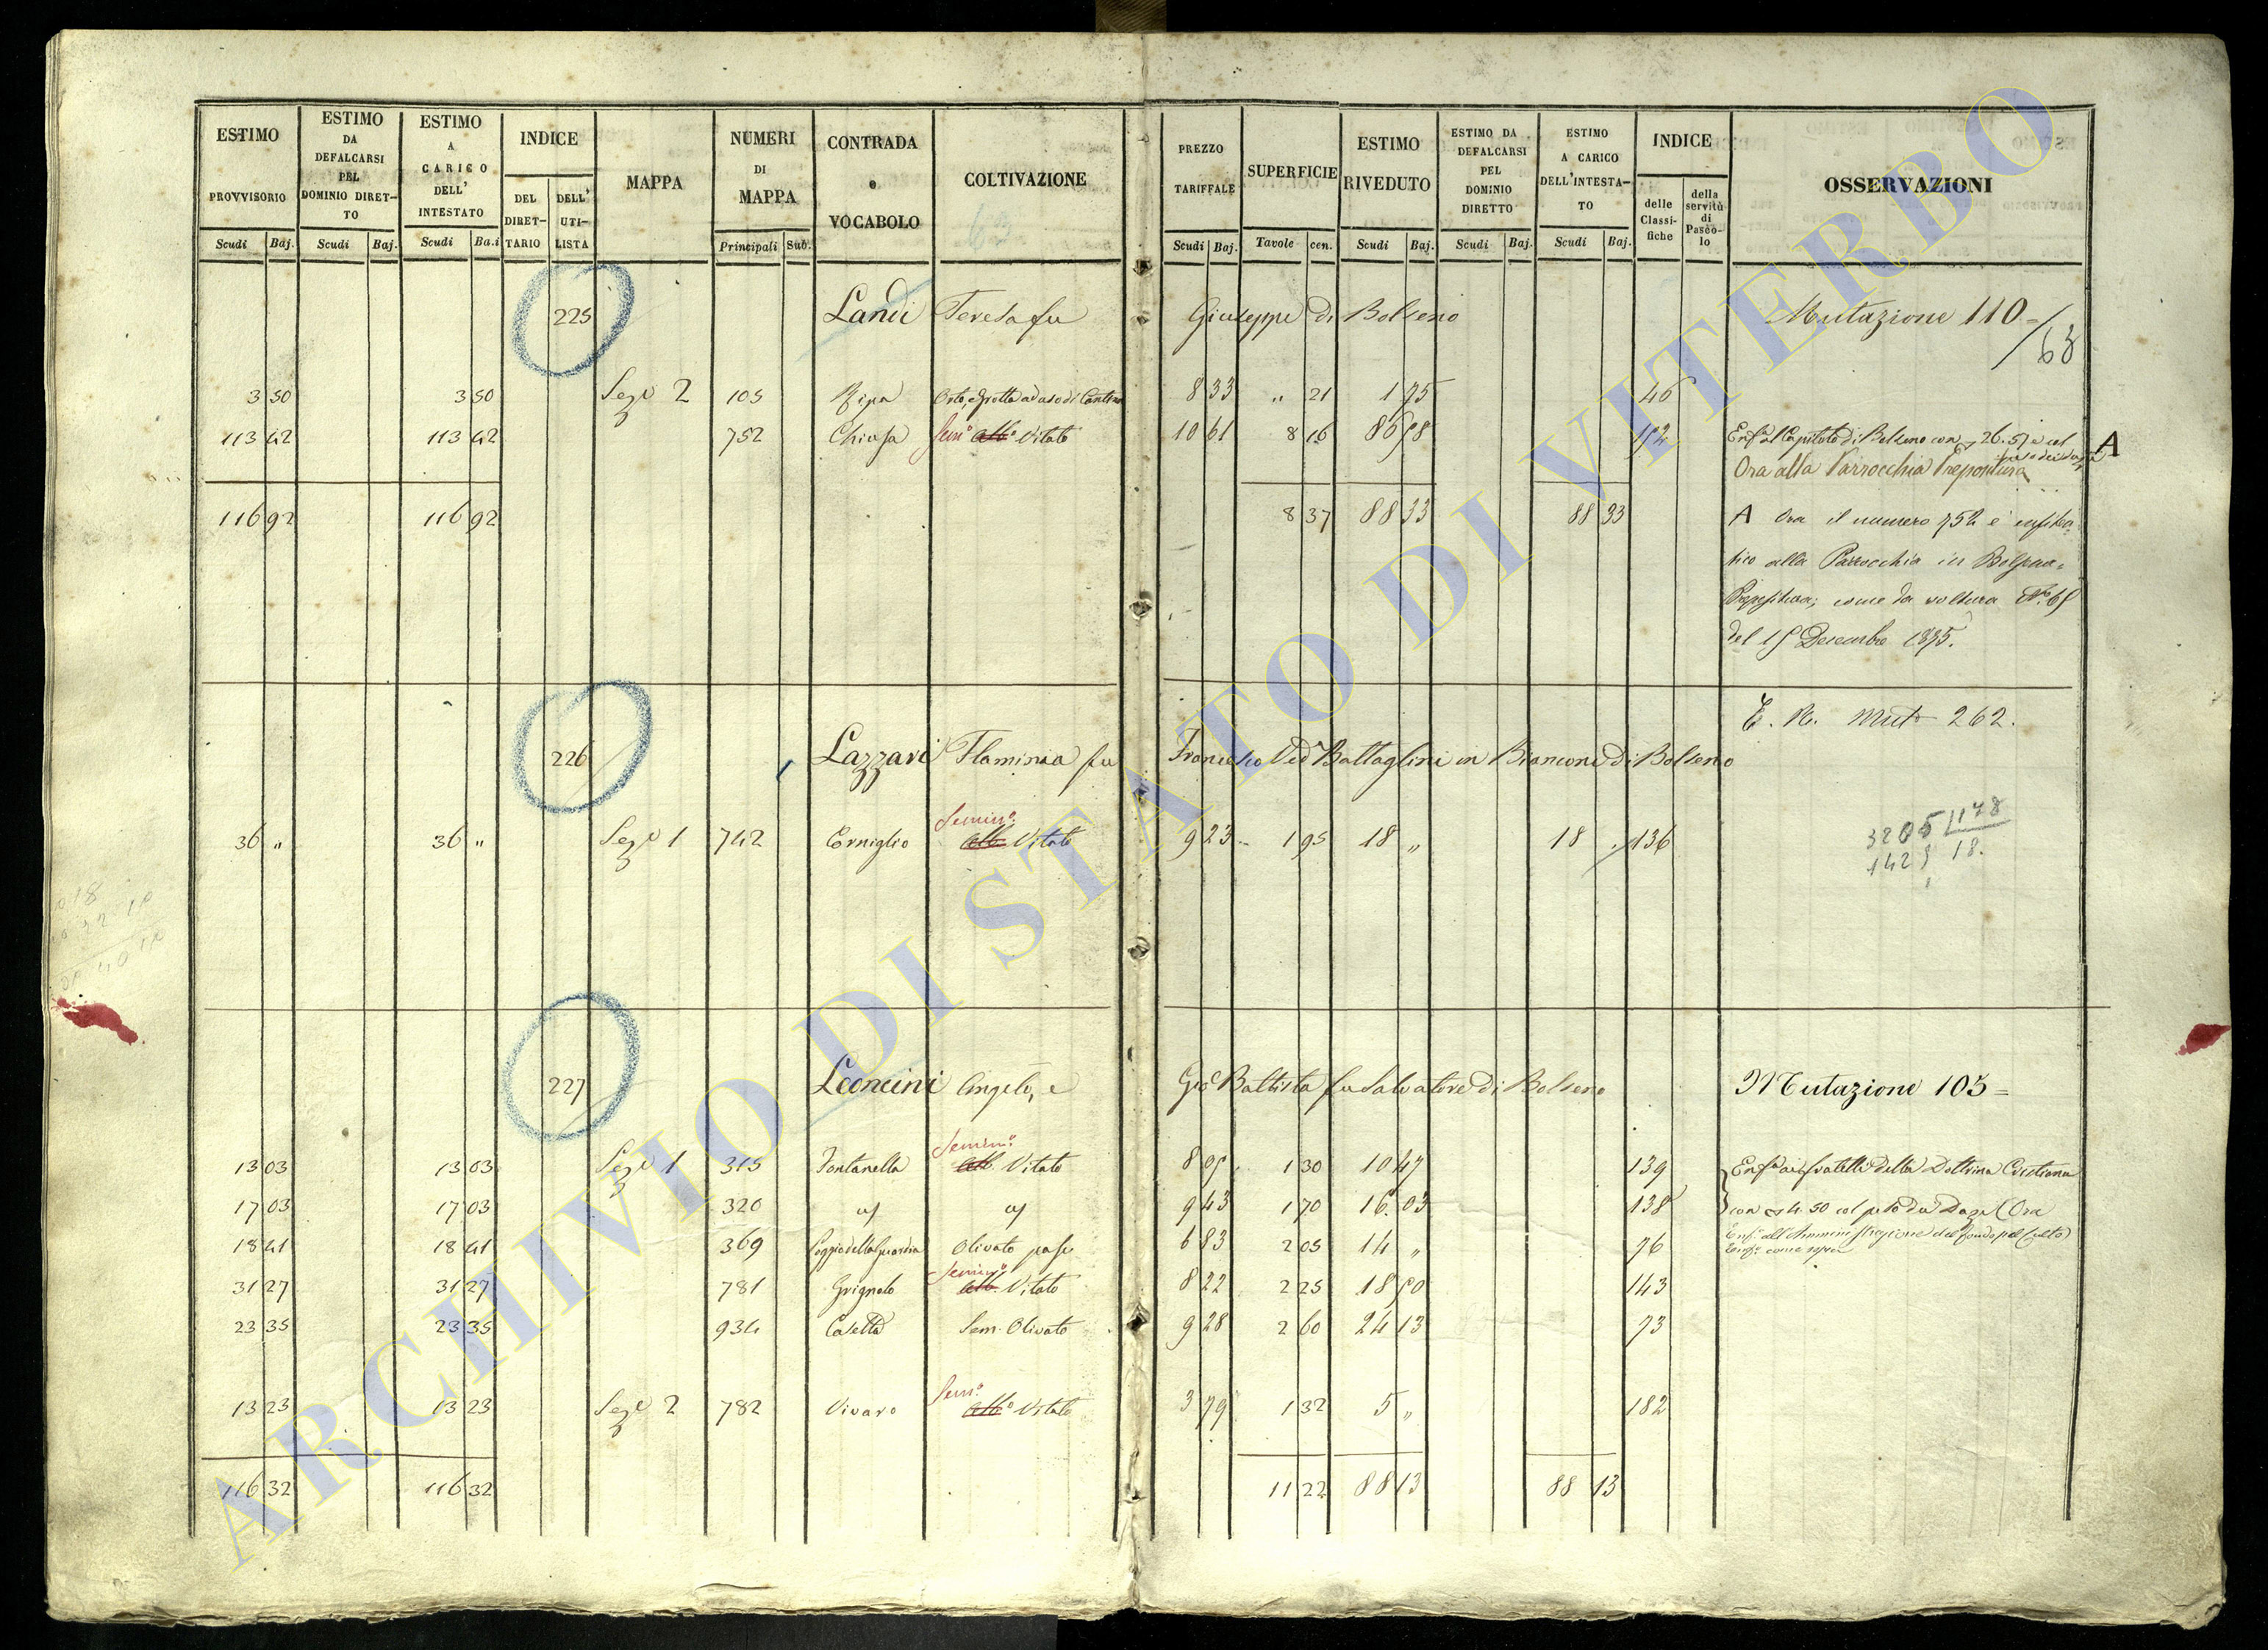 ESTIMO PROVVISORIO
Scudi Baj.
ESTIMO DA DEFALCARSI PEL DOMINIO DIRETTO
Scudi Baj.
ESTIMO A CARICO DELL' INTESTATO
Scudi Ba.i
INDICE
DEL DIRETTARIO
DELL' UTILISTA
MAPPA
NUMERI DI MAPPA
Principali Sub.
CONTRADA e VOCABOLO
COLTIVAZIONE
63
PREZZO TARIFFALE
Scudi Baj.
SUPERFICIE
Tavole cen.
ESTIMO RIVEDUTO
Scudi Baj.
ESTIMO DA DEFALCARSI PEL DOMINIO DIRETTO
Scudi Baj.
ESTIMO A CARICO DELL'INTESTATO
Scudi Baj.
INDICE
delle Classifiche
della servitù di Pascolo
OSSERVAZIONI
225 Landi Teresa fu Giuseppe di Bolseno Mutazione 110 =/63
3 50 3 50 Sez.e 2 105 Ripa Orto, e Grotta ad uso di Cantina 8 33 " 21 1 75 46
113 42 113 42 752 Chiusa Sem.o Alb.o Vitato 10 61 8 16 86 58 112 Enf.a al Capitolo di Bolseno con 26.57 e col peso dei dazi A
Ora alla Parrocchia Prepositura
116 92 116 92 8 37 88 33 88 33 A Ora il numero 752 è enfiteu-
tico alla Parrocchia in Bolsena=
Prepositura; come da voltura N.o 65
del 15 Decembre 1875.
E. R. Mut 262.
226 Lazzari Flaminia fu Francesco Ved.a Battaglini in Bianconi di Bolseno
36 " 36 " Sez.e 1 742 Corniglio Semin.o Alb. Vitato 9 23 1 95 18 " 18 . 136
3205 178
142 18.
227 Leoncini Angelo, e Gio. Battista fu Salvatore di Bolseno Mutazione 105 =
13 03 13 03 Sez.e 1 315 Fontanella Semin.o Alb. Vitato 8 05 1 30 10 47 139 Enf.a ai fratelli della Dottrina Cristiana
17 03 17 03 320 9 43 1 70 16. 03 138 con 4.50 col peso di Dazi (Ora
18 41 18 41 369 Poggio della Guardia Olivato pas.o 6 83 2 05 14 " 76 Enf. all'Amministrazione del fondo pel Culto)
Enf.a come sopra
31 27 31 27 781 Grignolo Semin.o Alb. Vitato 8 22 2 25 18 50 143
23 35 23 35 934 Casetta Sem. Olivato 9 28 2 60 24 13 73
13 23 13 23 Sez.e 2 782 Vivaro Sem.o Alb.o Vitato 3 79 1 32 5 " 182
116 32 116 32 11 22 88 13 88 13
ARCHIVIO DI STATO DI VITERBO